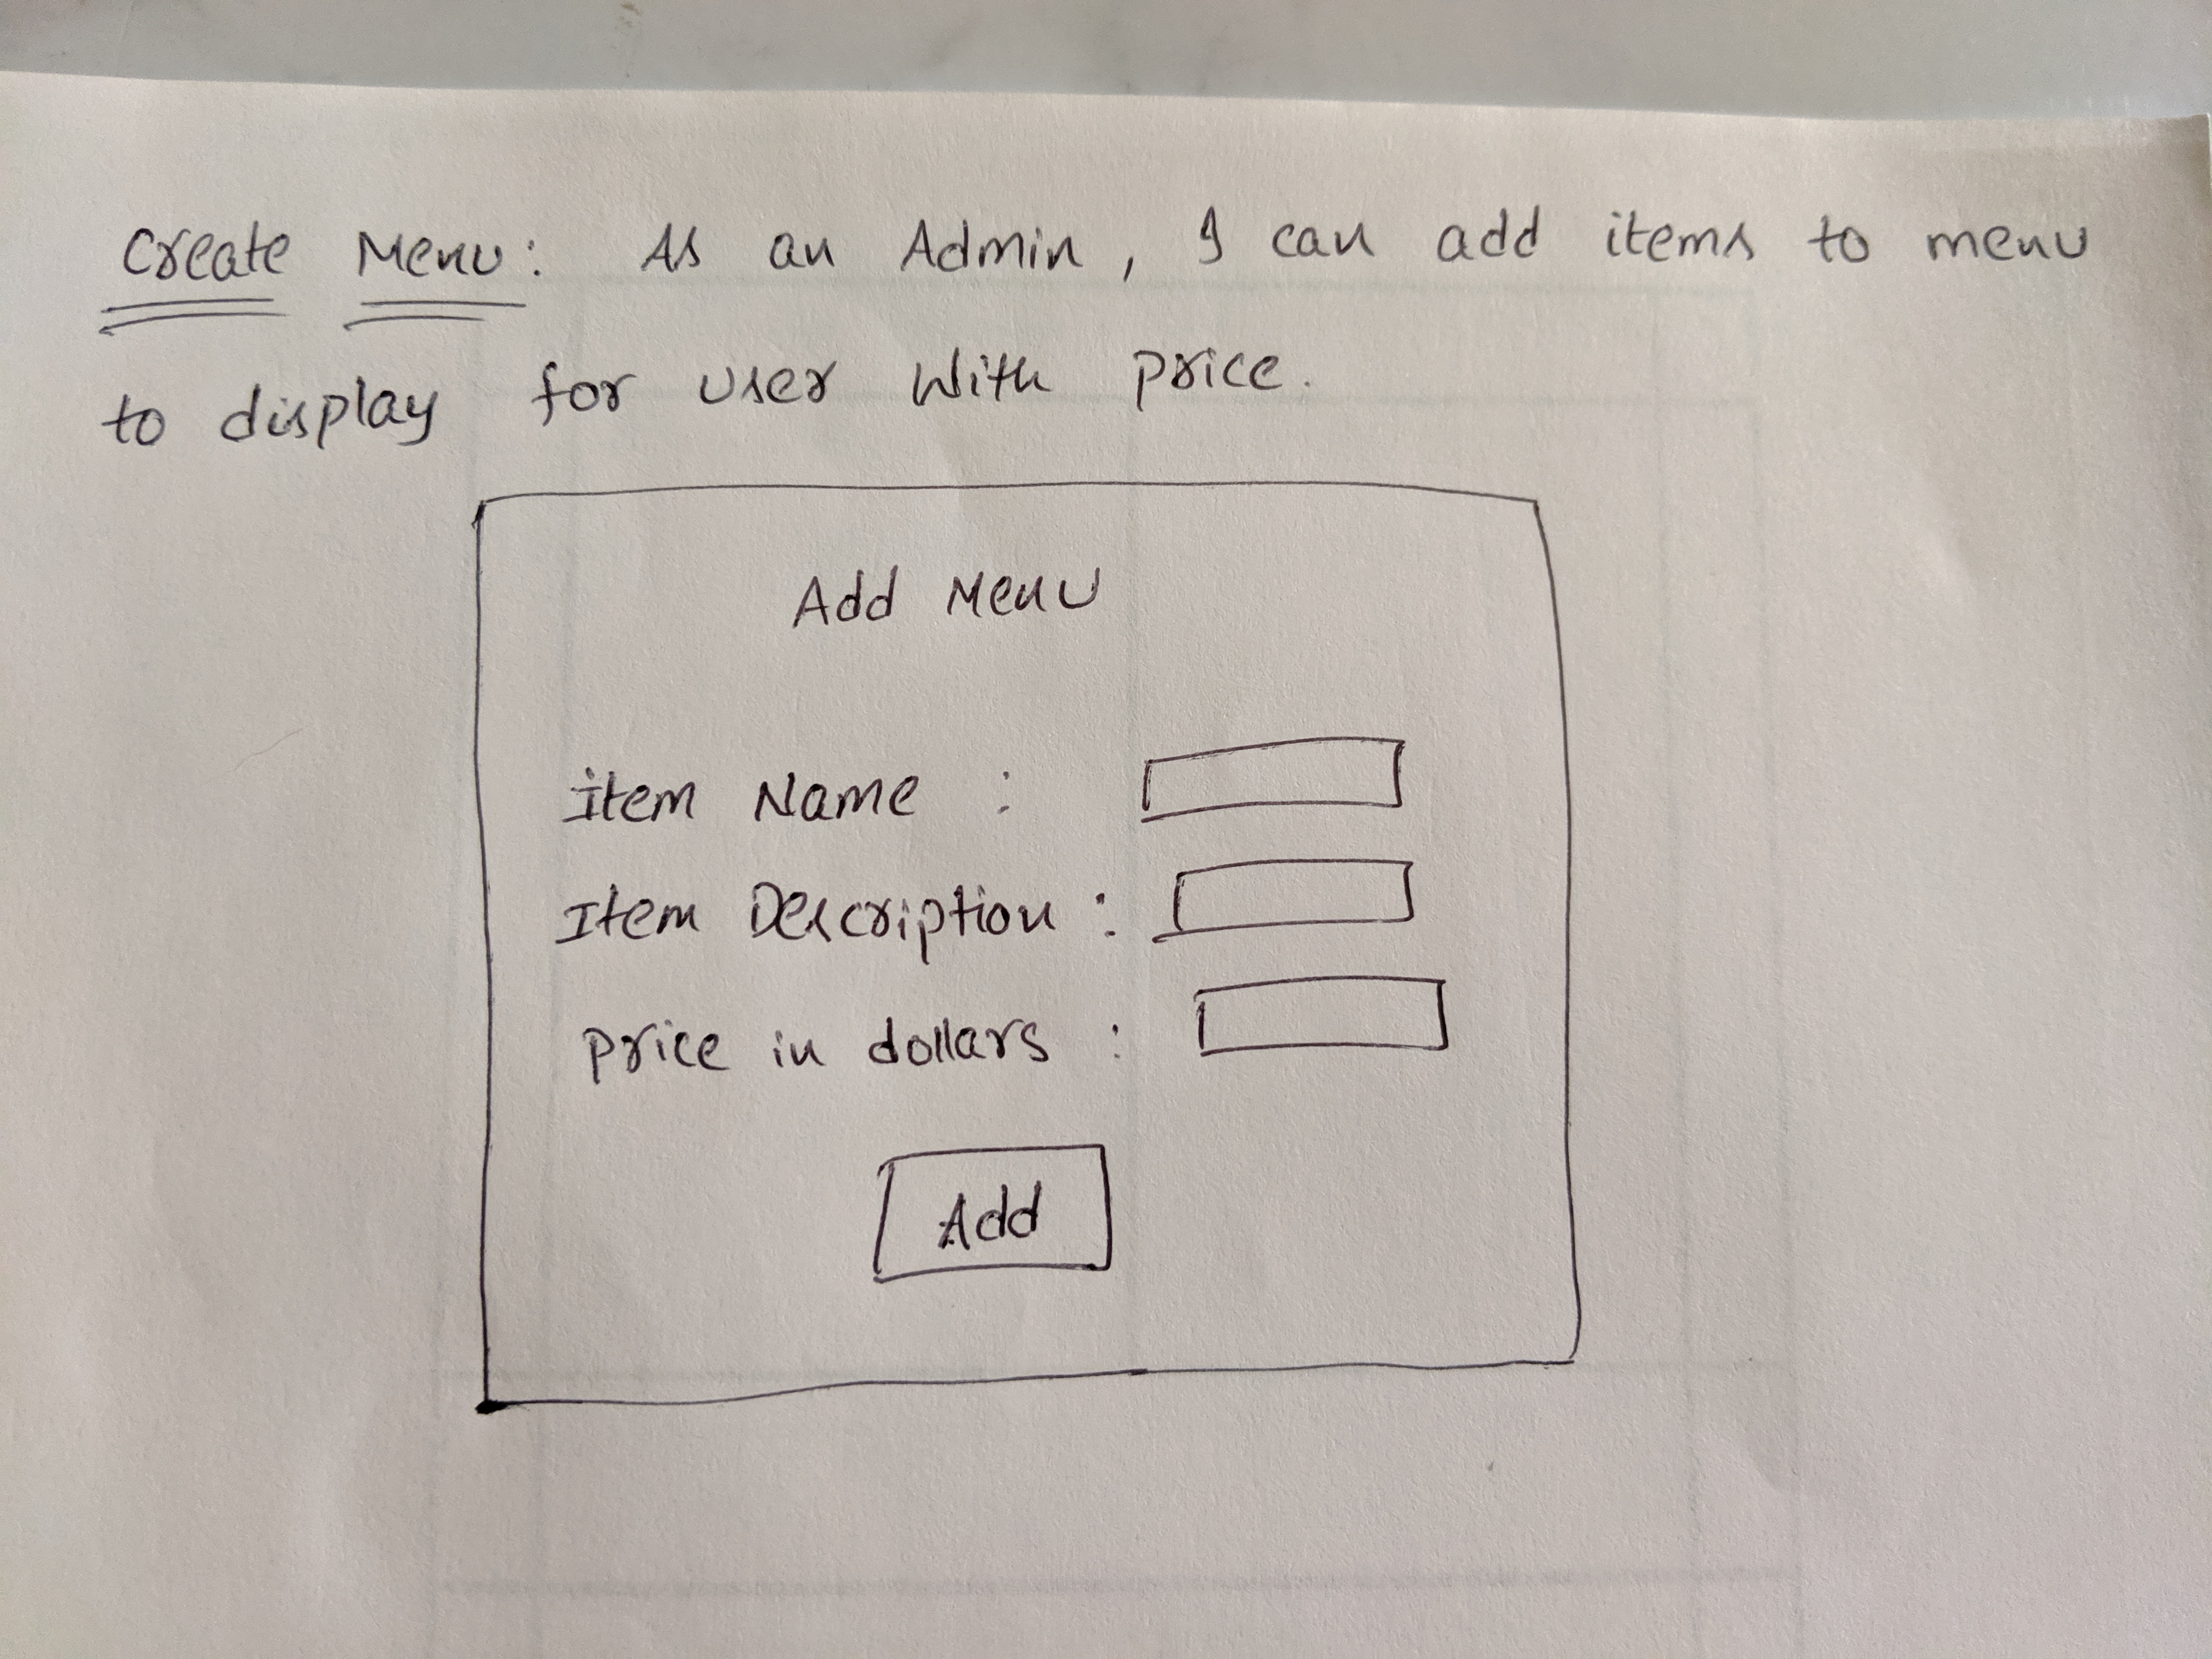 Create Menu: As an Admin, I can add items to menu
to display for user with price.
Add Menu
Item Name :
Item Description :
price in dollars :
Add